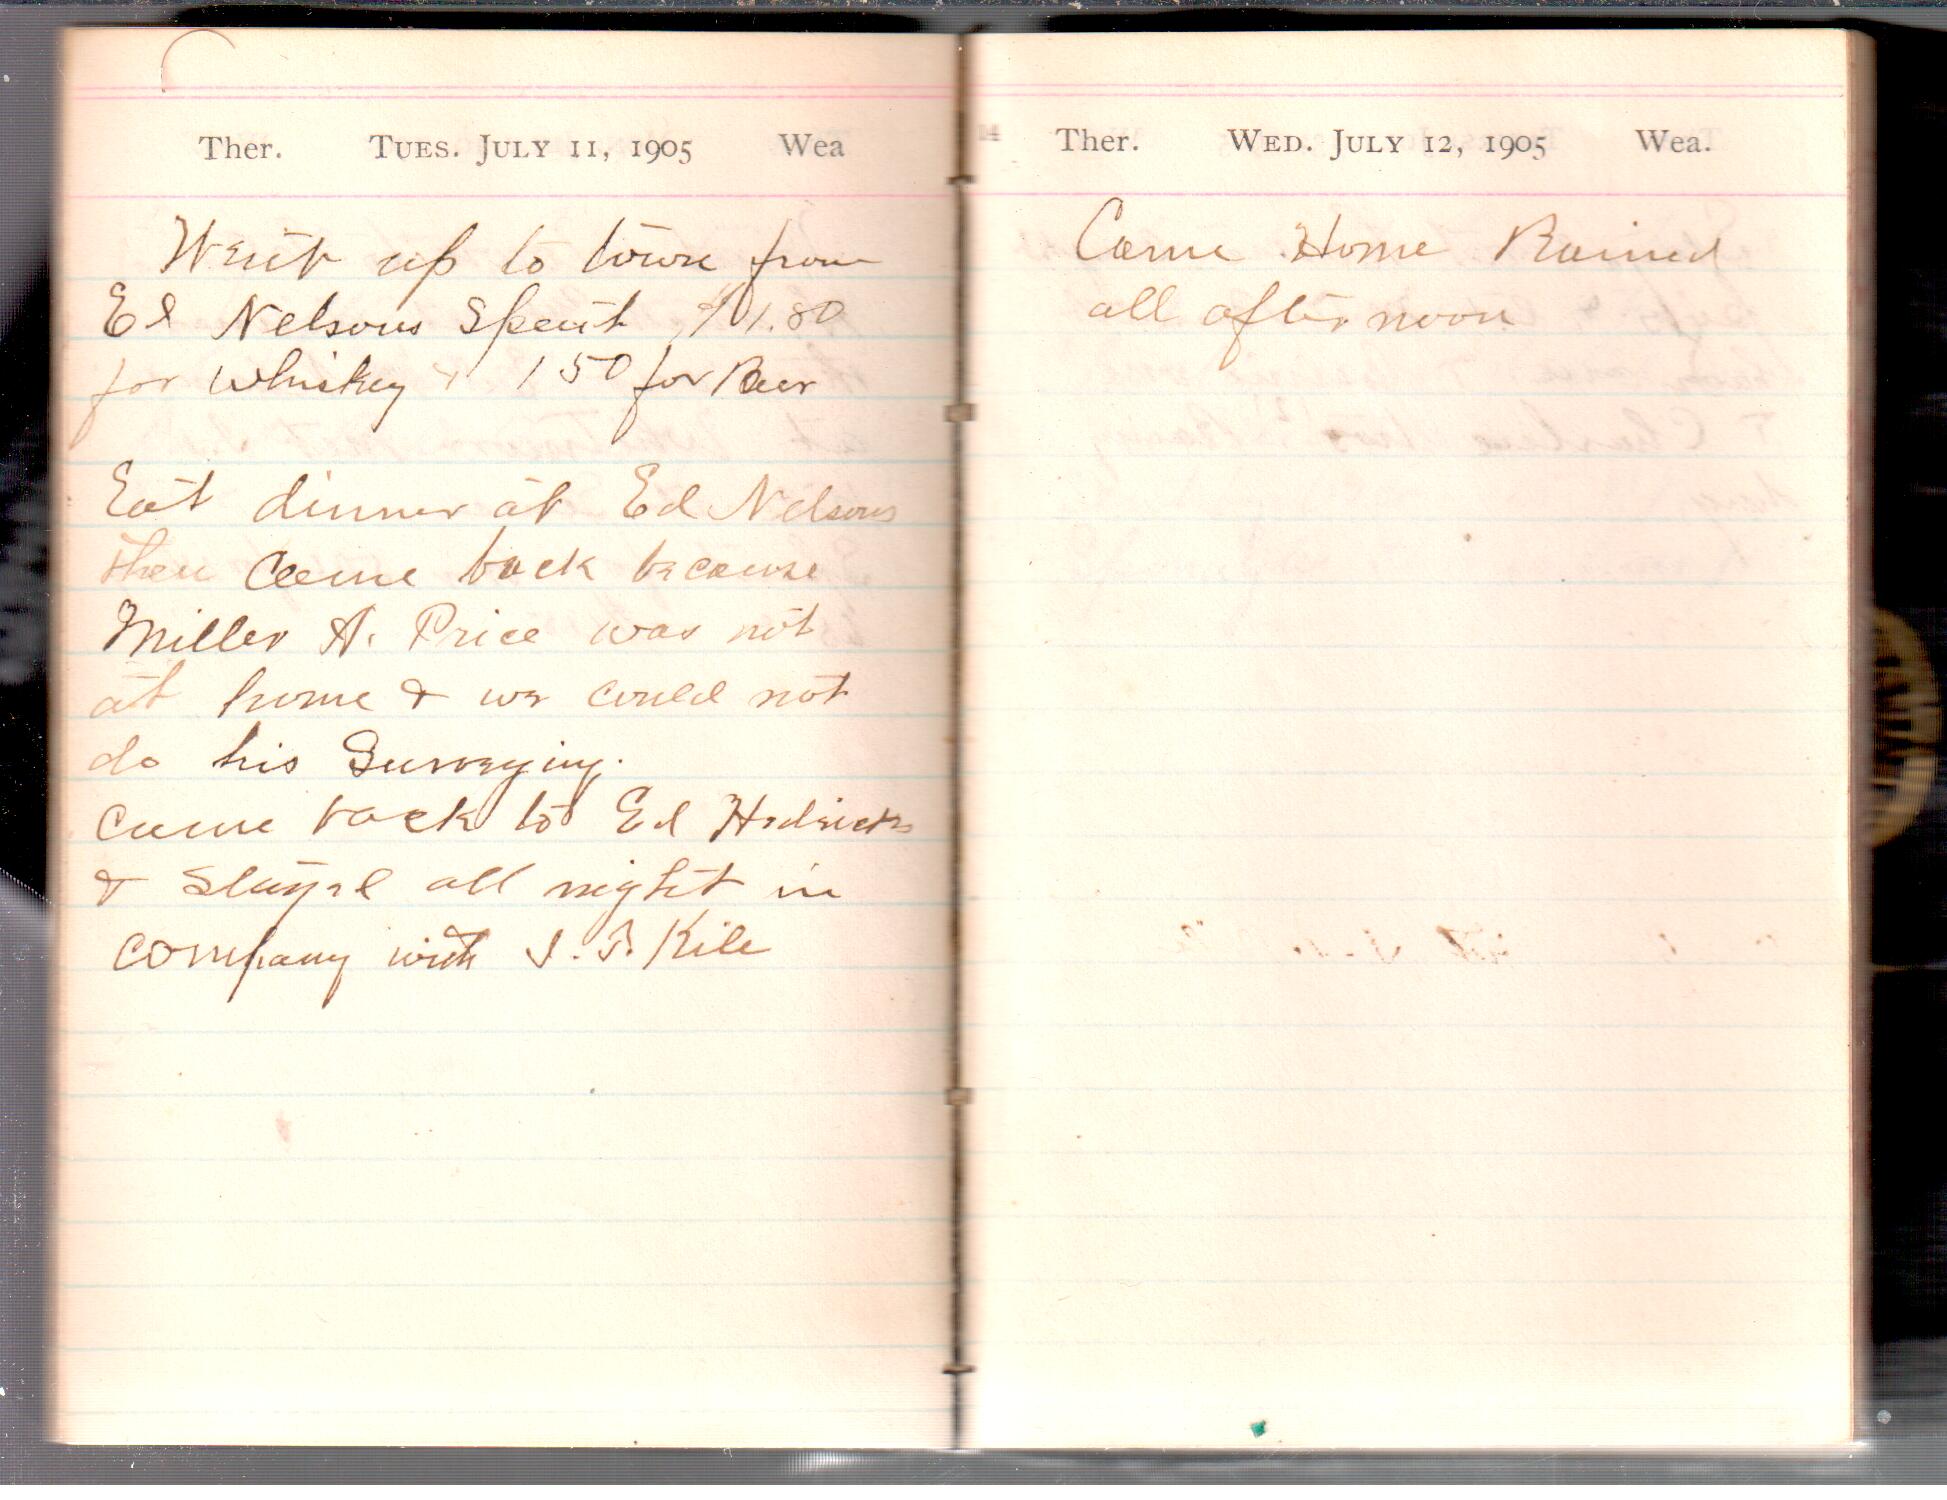 Ther. TUES. JULY 11, 1905 Wea
Went up to town from
Ed Nelsons Spent $1.80
for whiskey & 150 for Beer
Eat dinner at Ed Nelsons
then Came back because
Miller A. Price was not
at home & we could not
do his Surveying.
came back to Ed Hedricks
& Stayed all night in
company with J. Kile
Ther. WED. JULY 12, 1905 Wea.
Came Home Rained
all afternoon